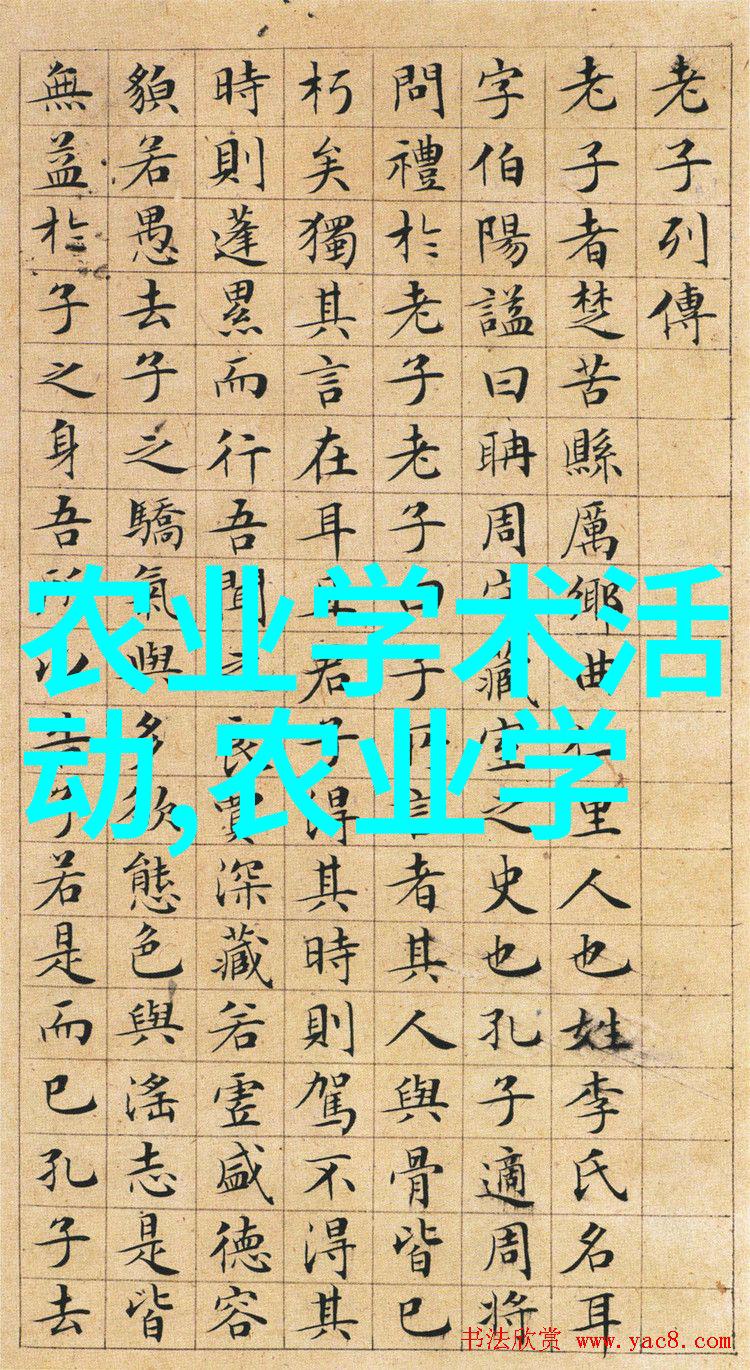 老子列傳
老子者楚苦縣厲鄉曲仁里人也姓李氏名耳
字伯陽謚曰聃周守藏室之史也孔子適周將
問禮於老子老子曰子所言者其人與骨皆已
朽矣獨其言在耳且君子得其時則駕不得其
時則蓬累而行吾聞之良賈深藏若虛盛德容
貌若愚去子之驕氣與多欲態色與淫志是皆
無益於子之身吾所以告子若是而已孔子去
农业学术活
动,农业学
书法欣赏 www.yac8.com